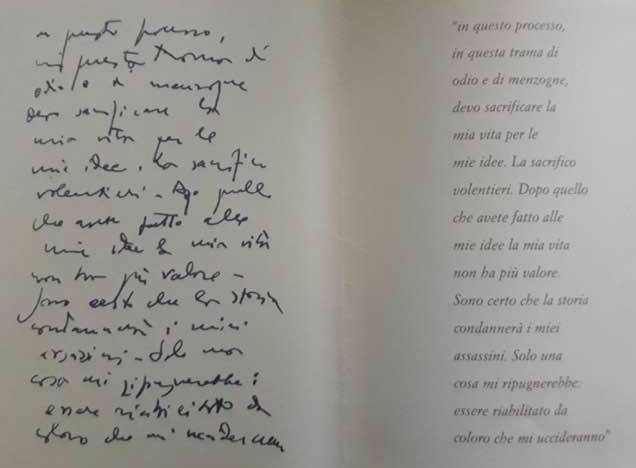 in questo processo,
in questa trama di
odio e di menzogne
devo sacrificare la
mia vita per le
mie idee. La sacrifico
volentieri. Dopo quello
che avete fatto alle
mie idee la mia vita
non ha più valore.
Sono certo che la storia
condannerà i miei
assassini. Solo una
cosa mi ripugnerebbe:
essere riabilitato da
coloro che mi uccideranno
"in questo processo,
in questa trama di
odio e di menzogne,
devo sacrificare la
mia vita per le
mie idee. La sacrifico
volentieri. Dopo quello
che avete fatto alle
mie idee la mia vita
non ha più valore.
Sono certo che la storia
condannerà i miei
assassini. Solo una
cosa mi ripugnerebbe:
essere riabilitato da
coloro che mi uccideranno"